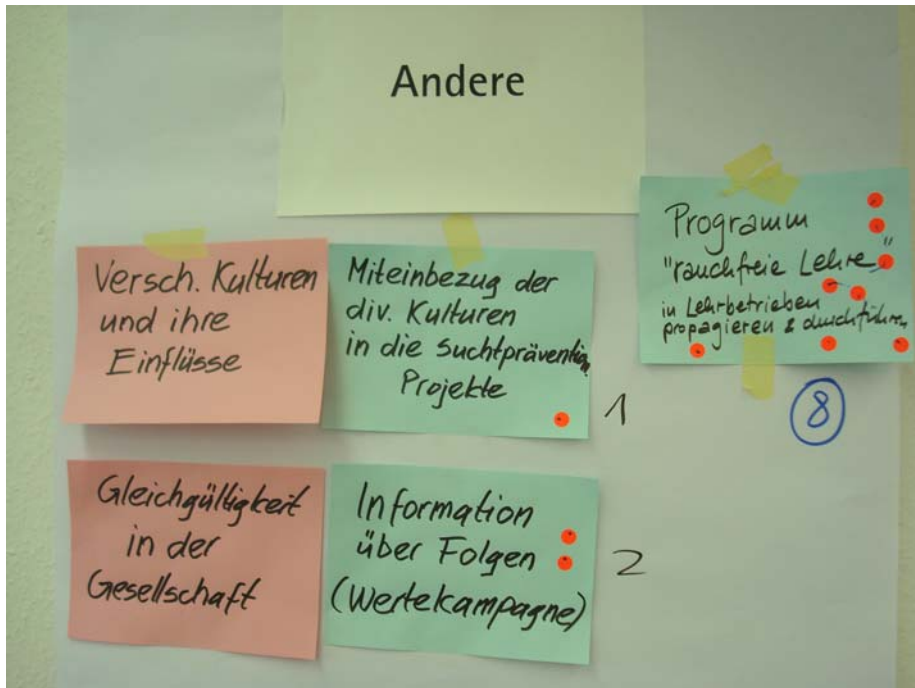 Andere
Versch. Kulturen
und ihre
Einflüsse
Miteinbezug der
div. Kulturen
in die Suchtprävention
Projekte
1
Programm
"rauchfreie Lehre"
in Lehrbetrieben
propagieren & durchführen
8
Gleichgültigkeit
in der
Gesellschaft
Information
über Folgen
(Wertekampagne)
2